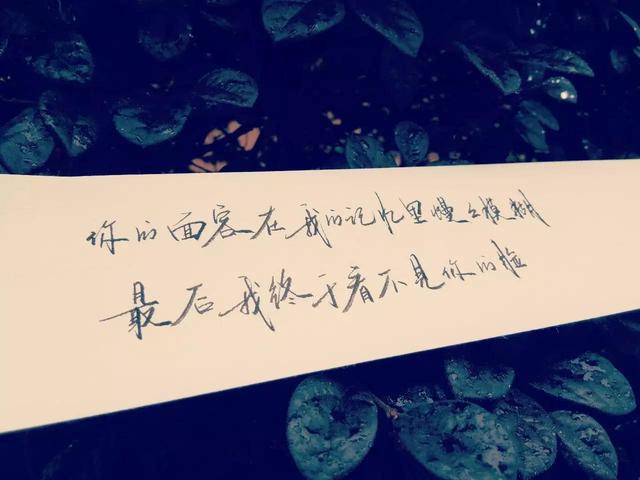 你的面容在我的记忆里慢々模糊
最后我终于看不见你的脸